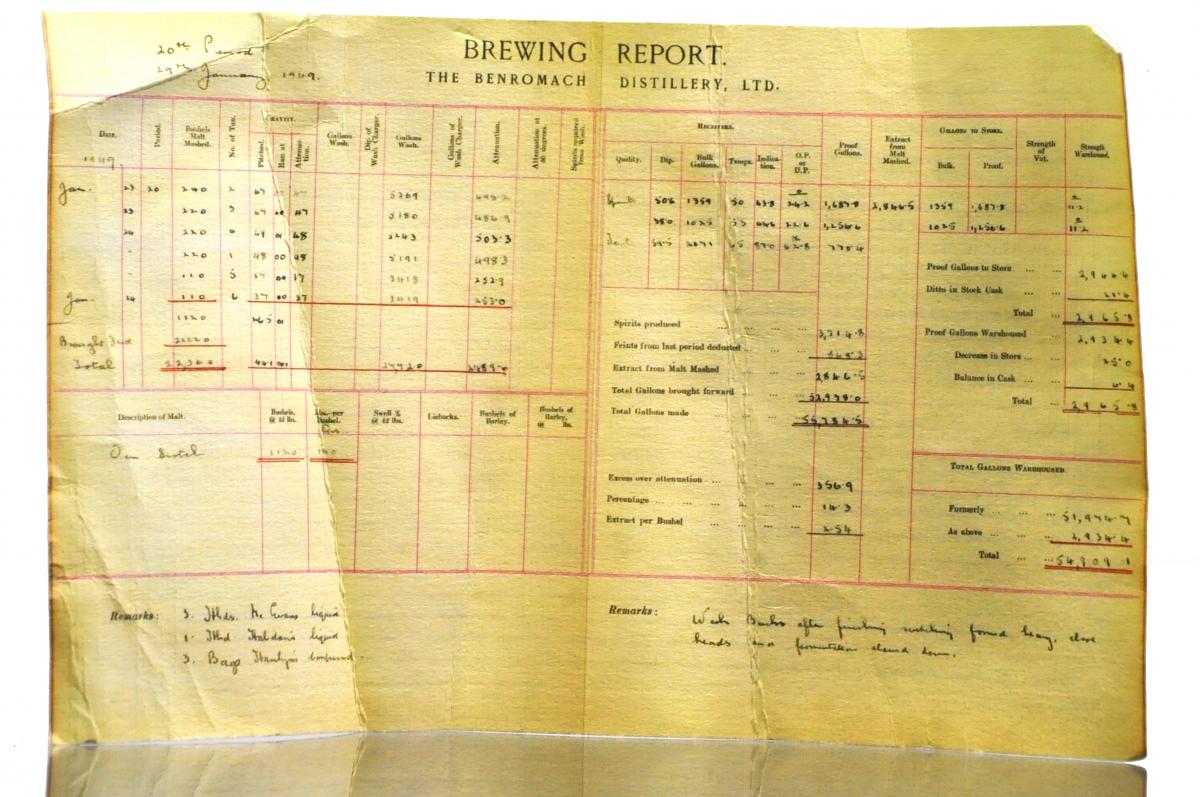 20th Period
29th January 1949.
BREWING REPORT.
THE BENROMACH DISTILLERY, LTD.
Date. Period. Bushels Malt Mashed. No. of Tun. GRAVITY. Pitched. Ran at Attenuation. Gallons Wash. Dip of Wash Charger. Gallons Wash. Gallons of Wash Charger. Attenuation. Attenuation at 80 degrees. Spirits required from Wash.
1949
Jan. 23 20 240 2 47 47 5209
23 220 3 47 00 47 5180 486.9
24 220 4 49 01 48 5243 503.3
" 220 1 48 00 48 5191 498.3
" 110 5 37 00 37 3418 252.9
Jan. 24 110 6 37 00 37 3419 253.0
1120 265 01
Brought Fwd
Total
Description of Malt. Bushels. @ 42 lbs. Lbs. per Bushel. Swell % @ 42 lbs. Liebucks. Bushels of Barley. Bushels of Barley, @ lbs.
1120 140
Remarks: 3. Hhds. Mc Ewans liquid
1. Hhd Haldanes liquid
3. Bags
RECEIVERS. Proof Gallons. Extract from Malt Mashed. GALLONS TO STORE. Strength of Vat. Strength Warehoused.
Quality. Dip. Bulk Gallons. Temps. Indication. O.P. or U.P. Bulk. Proof.
50.6 1359 50 43.8 24.2 1,687.8 2,846.5 1359 1,687.8 11.2
38.0 1025 53 22.6 1,256.6 1025 1,256.6 11.2
2071 65 87.0 62.8 770.4
Proof Gallons to Store ... ... 2,944.4
Ditto in Stock Cask ... ... 21.4
Total ... 2,965.8
Proof Gallons Warehoused ... 2,934.4
Decrease in Store ... ... 25.0
Balance in Cask ... ... 6.4
Total ... 2,965.8
Spirits produced ... ... ... ... ... 3,714.8
Feints from last period deducted ... ... 868.3
Extract from Malt Mashed ... ... ... 2846.5
Total Gallons brought forward ... ... 52,938.0
Total Gallons made ... ... ... 55,784.5
Excess over attenuation ... ... ... 356.9
Percentage ... ... ... ... 14.3
Extract per Bushel ... ... ... 2.54
TOTAL GALLONS WAREHOUSED.
Formerly ... ... ... 51,974.7
As above ... ... ... 2,934.4
Total ... ... 54,909.1
Remarks: Wash Backs after finishing switching formed heavy, close
heads and fermentation slowed down.